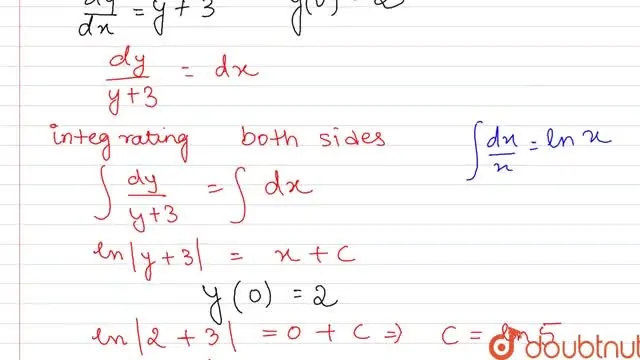 dy/dx = y + 3    y(0) = 2
dy/(y+3) = dx
integrating both sides
∫ dx/x = ln x
∫ dy/(y+3) = ∫ dx
ln|y+3| = x + C
y(0) = 2
ln|2+3| = 0 + C ⇒ C = ln 5
doubtnut